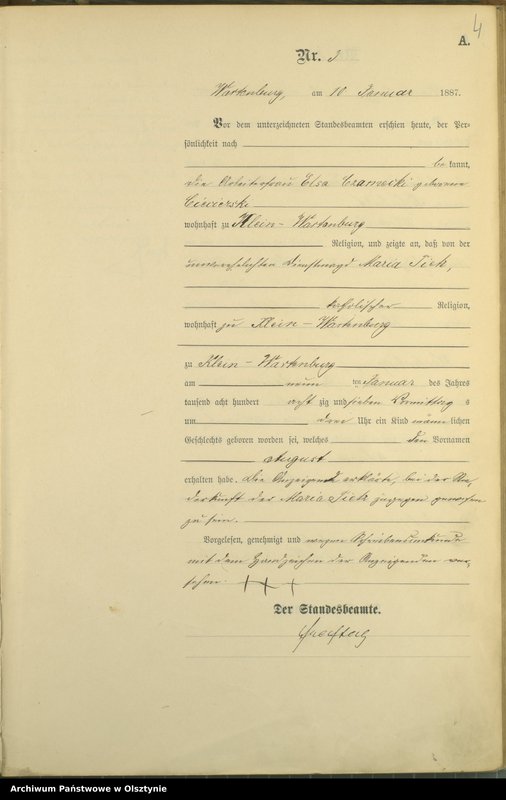 4
A.
Nr. 3
Wartenburg, am 10 Januar 1887.
Vor dem unterzeichneten Standesbeamten erschien heute, der Per-
sönlichkeit nach
bekannt,
die Arbeiterfrau Elsa Czarnecki geborene
wohnhaft zu Klein-Wartenburg
Religion, und zeigte an, daß von der
unverehelichten Dienstmagd Maria Tick,
katholischer Religion,
wohnhaft zu Klein-Wartenburg
zu Klein-Wartenburg
am neun ten Januar des Jahres
tausend acht hundert acht zig und sieben Vormittags
um drei Uhr ein Kind männlichen
Geschlechts geboren worden sei, welches den Vornamen
August
erhalten habe. Die Anzeigende erklärte, bei der Nie-
derkunft der Maria Tick zugegen gewesen
zu sein.
Vorgelesen, genehmigt und wegen Schreibensunkunde
mit dem Handzeichen der Anzeigenden ver-
sehen. +++
Der Standesbeamte.
Archiwum Państwowe w Olsztynie